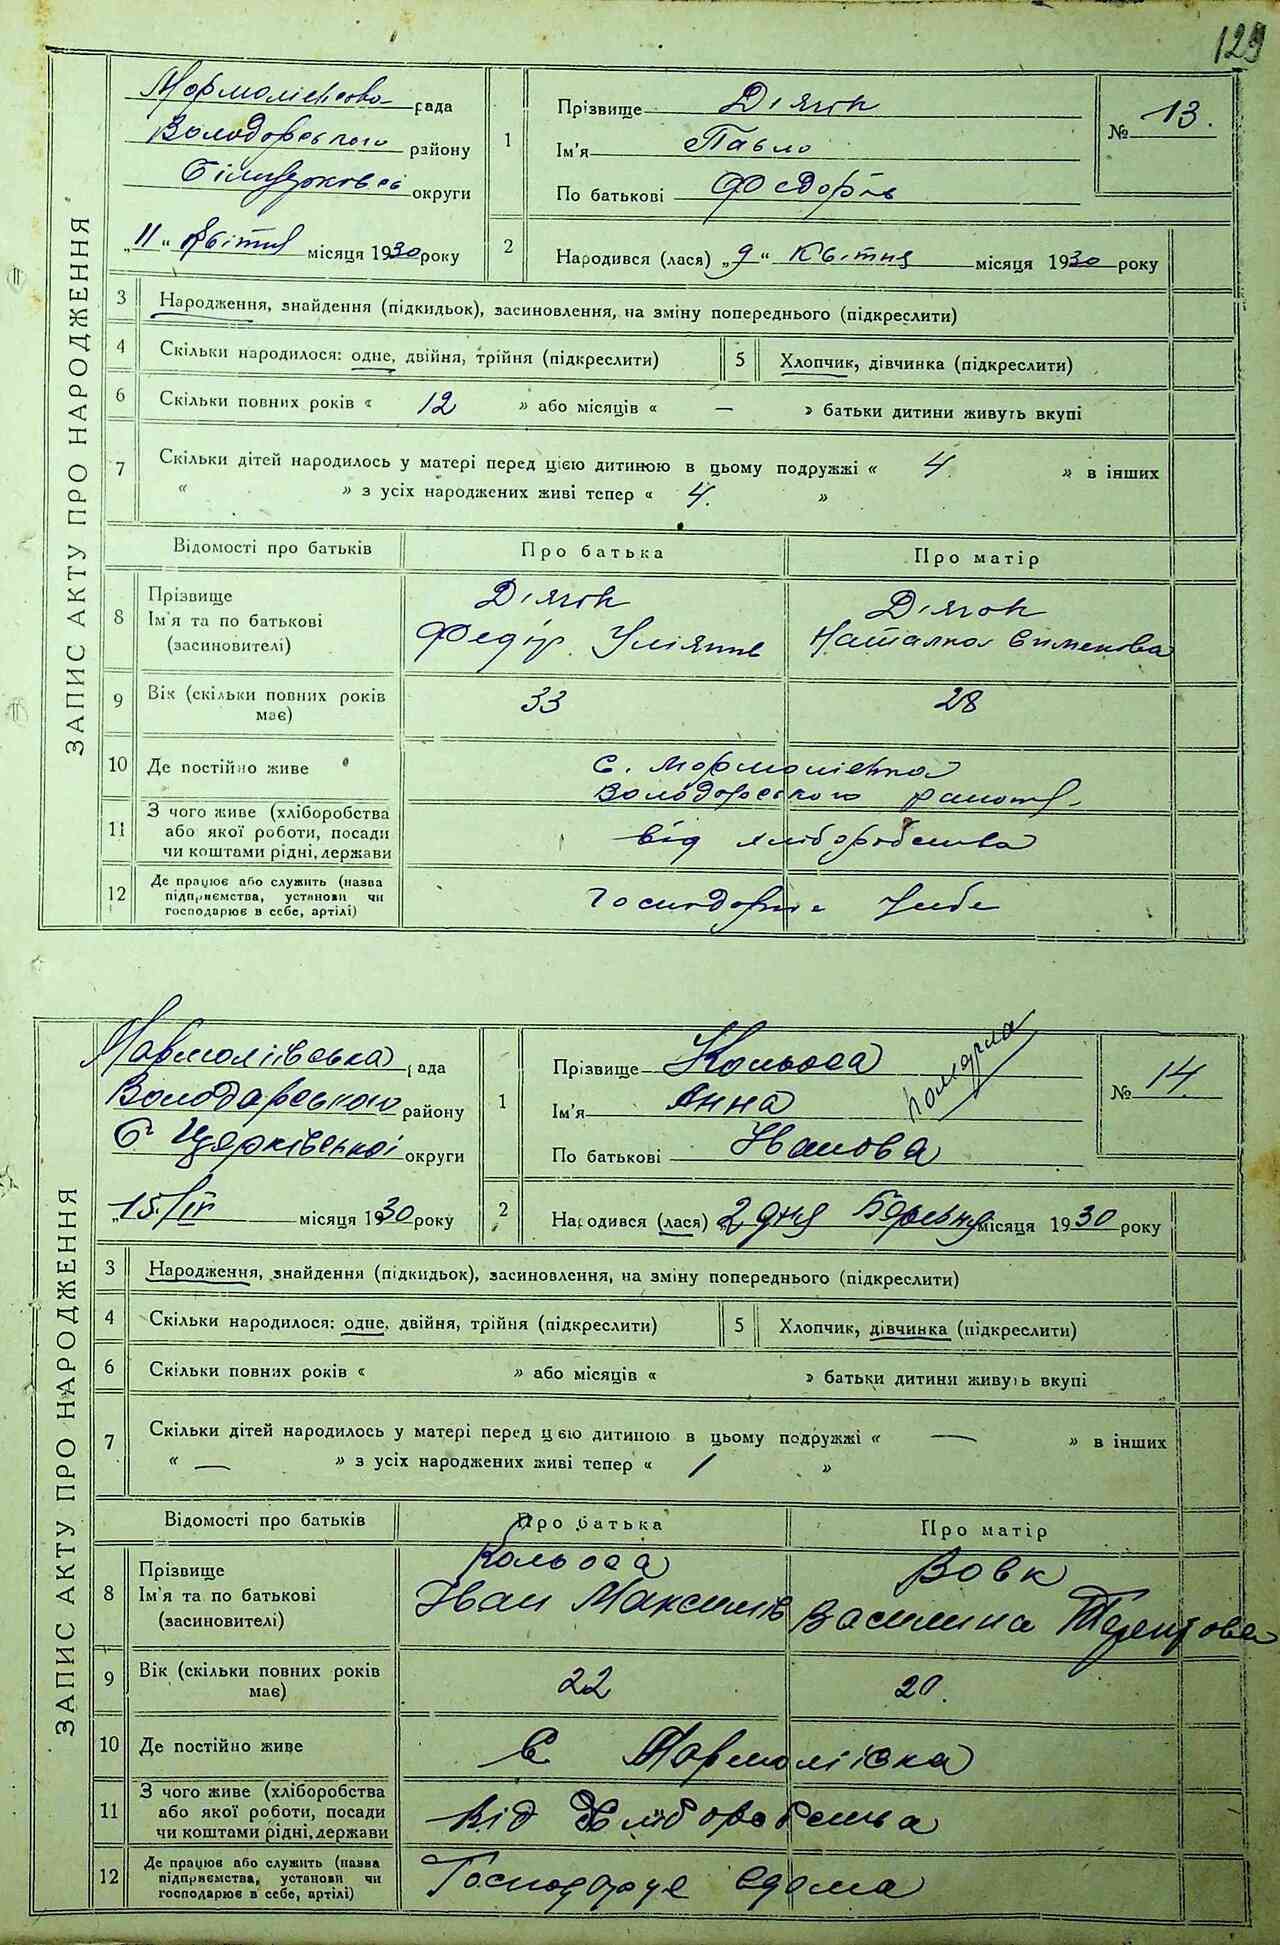 129
ЗАПИС АКТУ ПРО НАРОДЖЕННЯ
Мармоліївська рада
Володарського району
Білоцерковс округи
„11" Квітня місяця 1930 року
1 Прізвище Діячок
Ім'я Павло
По батькові Федорів
№ 13.
2 Народився (лася) „9" Квітня місяця 1930 року
3 Народження, знайдення (підкидьок), засиновлення, на зміну попереднього (підкреслити)
4 Скільки народилося: одне, двійня, трійня (підкреслити) 5 Хлопчик, дівчинка (підкреслити)
6 Скільки повних років « 12 » або місяців « — » батьки дитини живуть вкупі
7 Скільки дітей народилось у матері перед цією дитиною в цьому подружжі « 4 » в інших
« » з усіх народжених живі тепер « 4. »
Відомості про батьків Про батька Про матір
8 Прізвище
Ім'я та по батькові
(засиновителі)
Діячок
Федір
Діячок
Наталка
9 Вік (скільки повних років
має) 33 28
10 Де постійно живе с. Мармоліївка
Володарського району
11 З чого живе (хліборобства
або якої роботи, посади
чи коштами рідні, держави
від хліборобства
12 Де працює або служить (назва
підприємства, установи чи
господарює в себе, артілі)
Господарює у себе
ЗАПИС АКТУ ПРО НАРОДЖЕННЯ
Мармоліївська рада
Володарського району
Б. Церківської округи
„15/IV місяця 1930 року
1 Прізвище Кольоса
Ім'я Анна
По батькові Іванова
померла
№ 14.
2 Народився (лася) „2 дня Березня місяця 1930 року
3 Народження, знайдення (підкидьок), засиновлення, на зміну попереднього (підкреслити)
4 Скільки народилося: одне, двійня, трійня (підкреслити) 5 Хлопчик, дівчинка (підкреслити)
6 Скільки повних років « » або місяців « » батьки дитини живуть вкупі
7 Скільки дітей народилось у матері перед цією дитиною в цьому подружжі « — » в інших
« — » з усіх народжених живі тепер « 1 »
Відомості про батьків Про батька Про матір
8 Прізвище
Ім'я та по батькові
(засиновителі)
Кольоса
Іван Максимів
Вовк
Василина Терентова
9 Вік (скільки повних років
має) 22 20.
10 Де постійно живе С Мармоліївка
11 З чого живе (хліборобства
або якої роботи, посади
чи коштами рідні, держави
Від Хліборобства
12 Де працює або служить (назва
підприємства, установи чи
господарює в себе, артілі)
Господарує вдома